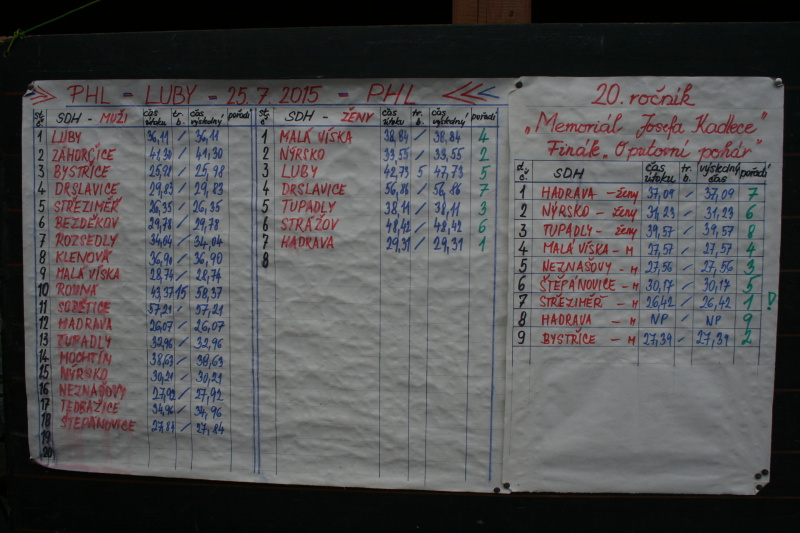 PHL - LUBY - 25.7.2015 - PHL
st. č. SDH - MUŽI čas útoku tr. b. čas výsledný pořadí
1 LUBY 36,11 / 36,11
2 ZÁHORČICE 41,30 / 41,30
3 BYSTŘICE 25,98 / 25,98
4 DRSLAVICE 29,83 / 29,83
5 STŘEZIMĚŘ 26,35 / 26,35
6 BEZDĚKOV 29,78 / 29,78
7 ROZSEDLY 34,04 / 34,04
8 KLENOVÁ 36,90 / 36,90
9 MALÁ VÍSKA 28,74 / 28,74
10 ROVNÁ 43,37 15 58,37
11 SOBĚTICE 57,21 / 57,21
12 HADRAVA 26,07 / 26,07
13 TUPADLY 32,96 / 32,96
14 MOCHTÍN 38,63 / 38,63
15 NÝRSKO 30,21 / 30,21
16 NEZNAŠOVY 27,92 / 27,92
17 TEDRAŽICE 34,96 / 34,96
18 ŠTĚPÁNOVICE 27,84 / 27,84
19
20
st. č. SDH - ŽENY čas útoku tr. b. čas výsledný pořadí
1 MALÁ VÍSKA 38,84 / 38,84 4
2 NÝRSKO 33,55 / 33,55 2
3 LUBY 42,73 5 47,73 5
4 DRSLAVICE 56,86 / 56,86 7
5 TUPADLY 38,11 / 38,11 3
6 STRÁŽOV 48,42 / 48,42 6
7 HADRAVA 29,31 / 29,31 1
8
20. ročník
„Memoriál Josefa Kadlece"
Finále „O putovní pohár"
st. č. SDH čas útoku tr. b. výsledný čas pořadí
1 HADRAVA - ženy 37,09 / 37,09 7
2 NÝRSKO - ženy 31,23 / 31,23 6
3 TUPADLY - ženy 39,57 / 39,57 8
4 MALÁ VÍSKA - M 27,57 / 27,57 4
5 NEZNAŠOVY - M 27,56 / 27,56 3
6 ŠTĚPÁNOVICE - M 30,17 / 30,17 5
7 STŘEZIMĚŘ - M 26,42 / 26,42 1 !
8 HADRAVA - M NP / NP 9
9 BYSTŘICE - M 27,39 / 27,39 2